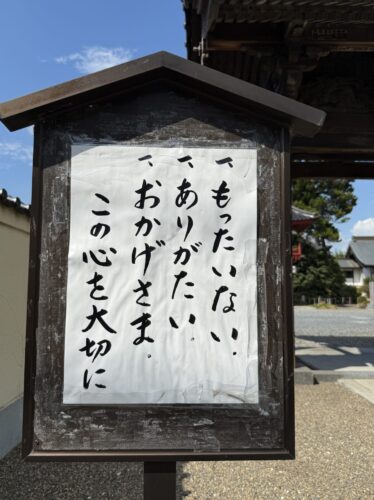 一、もったいない。
一、ありがたい。
一、おかげさま。
この心を大切に